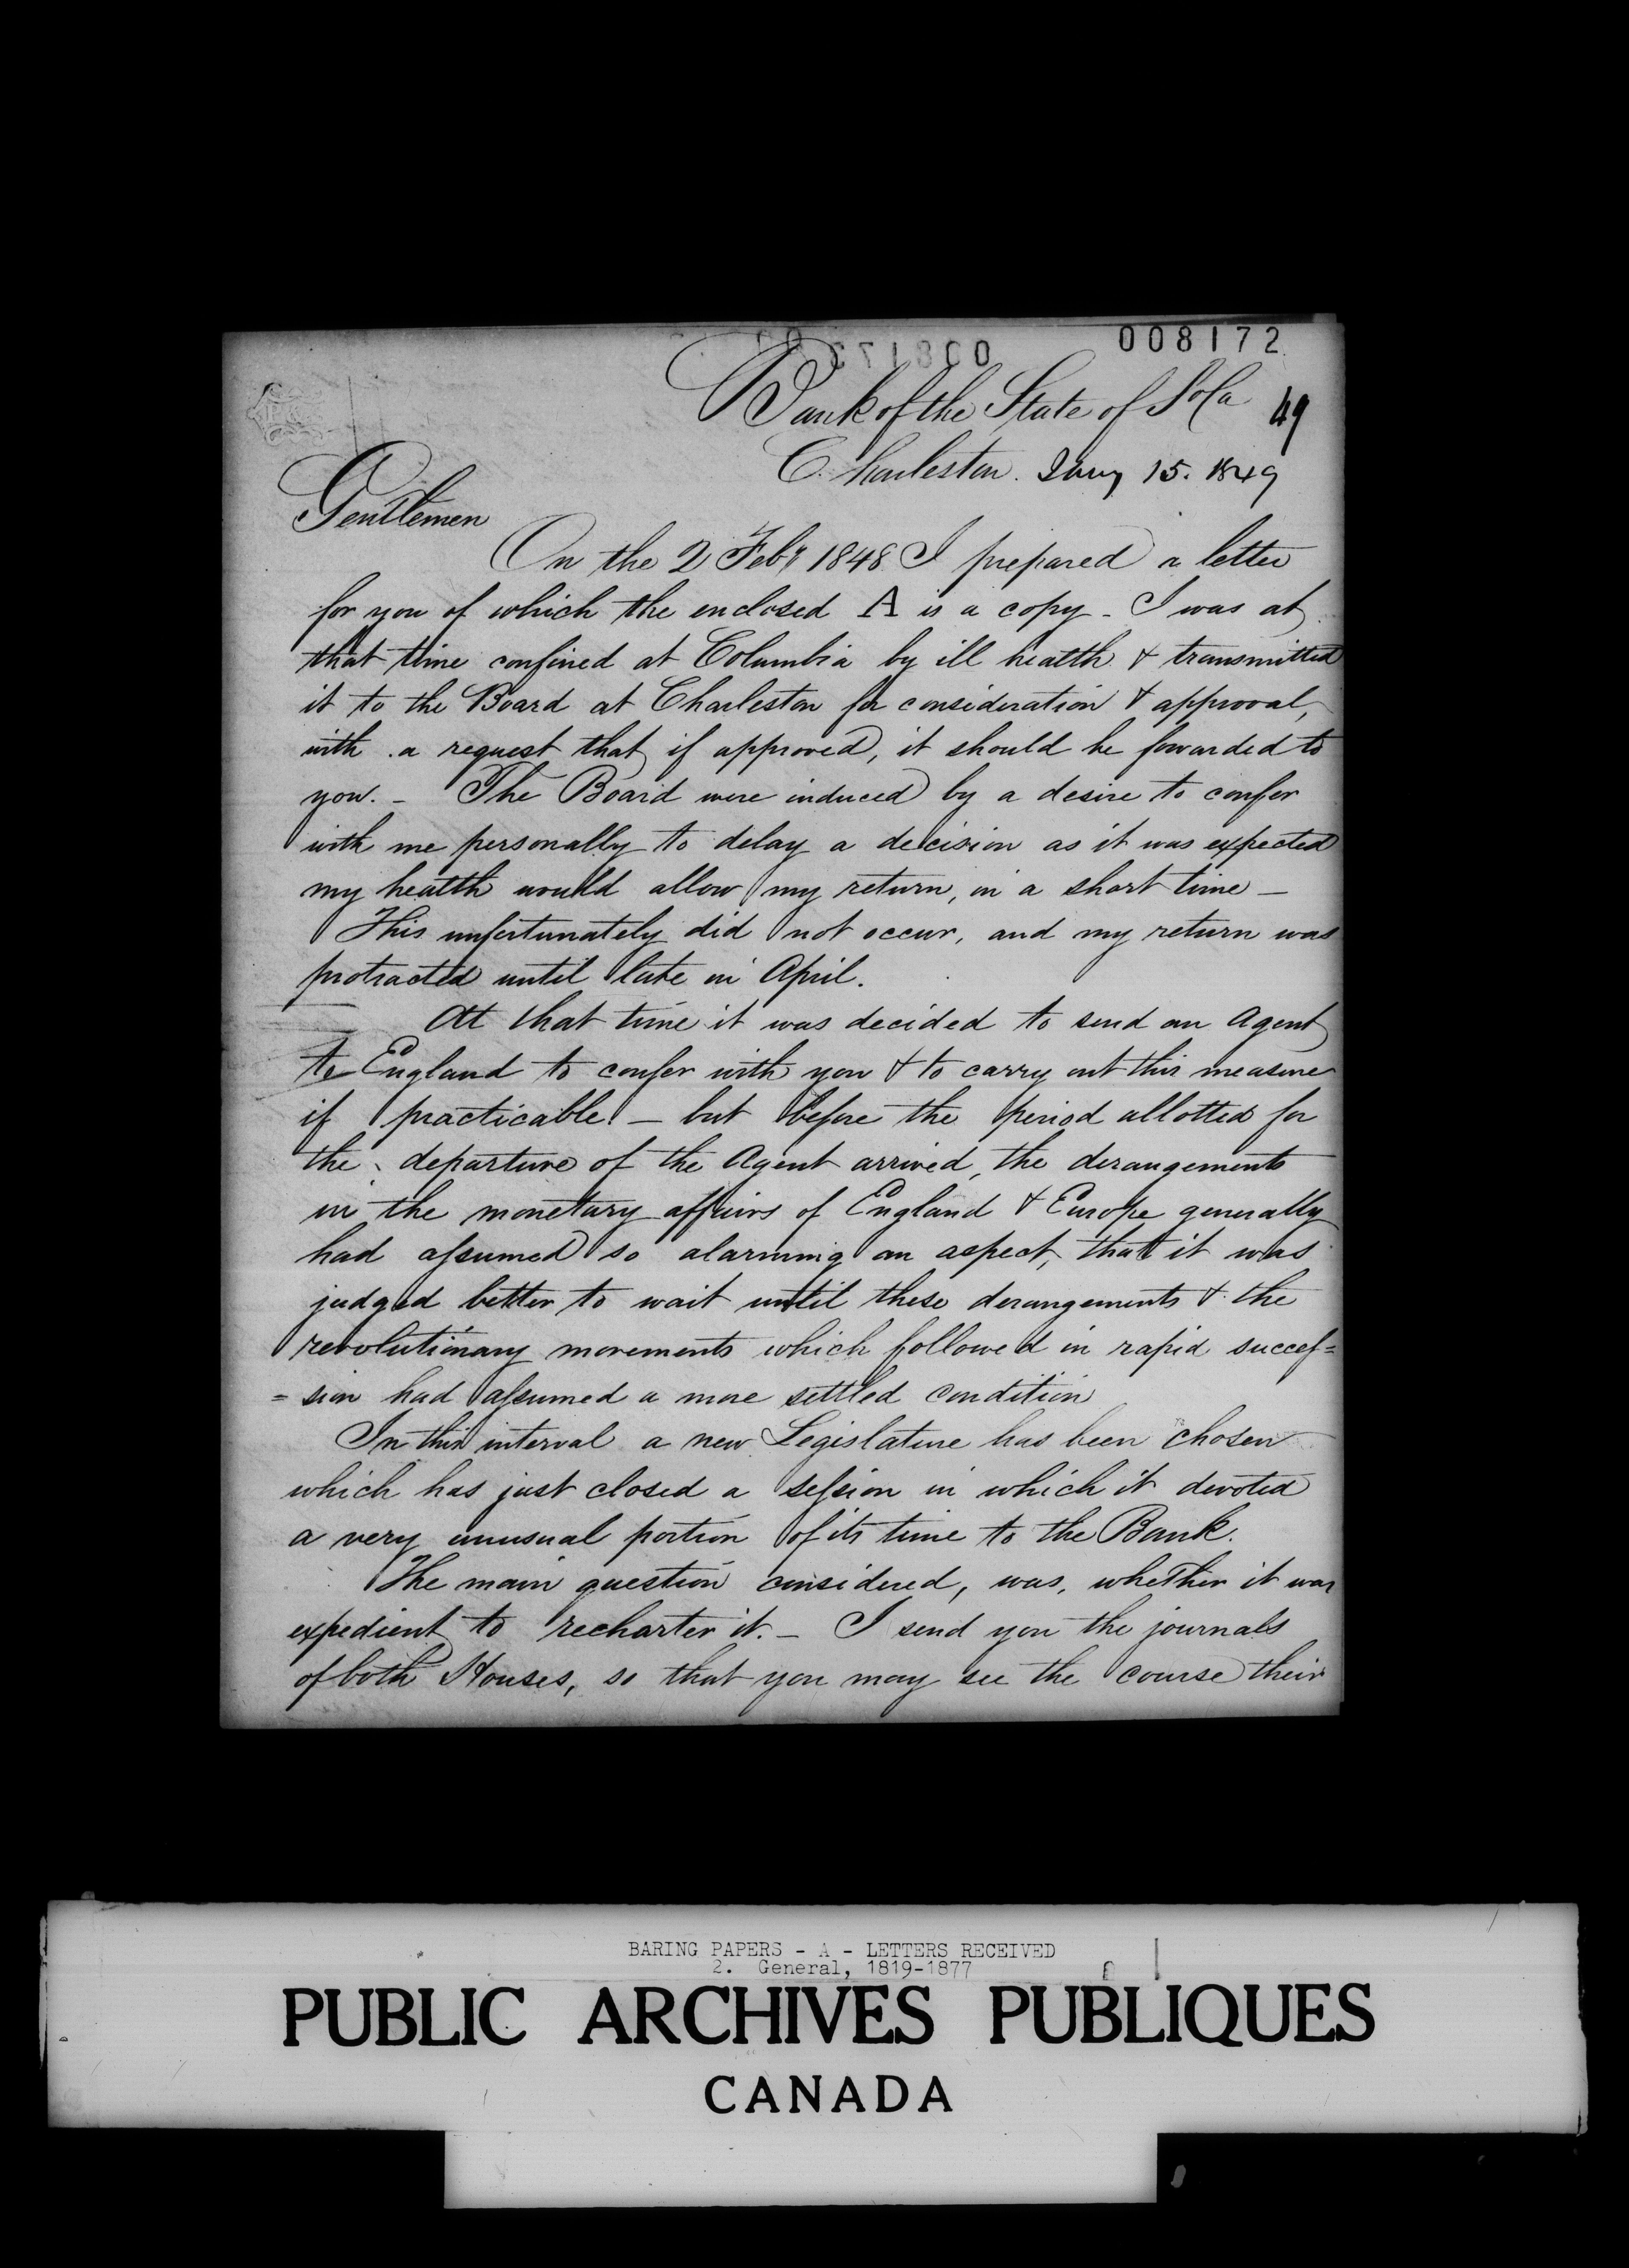 008172
Bank of the State of So Ca
49
Charleston. Jany 15. 1849
Gentlemen
On the 2 Feby 1848 I prepared a letter
for you of which the enclosed A is a copy - I was at
that time confined at Columbia by ill health & transmitted
it to the Board at Charleston for consideration & approval,
with a request that if approved, it should be fowarded to
you. - The Board were induced by a desire to confer
with me personally to delay a decision as it was expected
my health would allow my return, in a short time -
This unfortunately did not occur, and my return was
protracted until late in April.
At that time it was decided to send an Agent
to England to confer with you & to carry out this measure
if practicable - but before the period allotted for
the departure of the Agent arrived, the derangements
in the monetary affairs of England & Europe generally
had assumed so alarming an aspect, that it was
judged better to wait until these derangements & the
revolutionary movements which followed in rapid succes=
=sion had assumed a more settled condition
In this interval a new Legislature has been chosen
which has just closed a session in which it devoted
a very unusual portion of its time to the Bank.
The main question considered, was, whether it was
expedient to recharter it. - I send you the journals
of both Houses, so that you may see the course their
BARING PAPERS - A - LETTERS RECEIVED
2. General, 1819-1877
PUBLIC ARCHIVES PUBLIQUES
CANADA